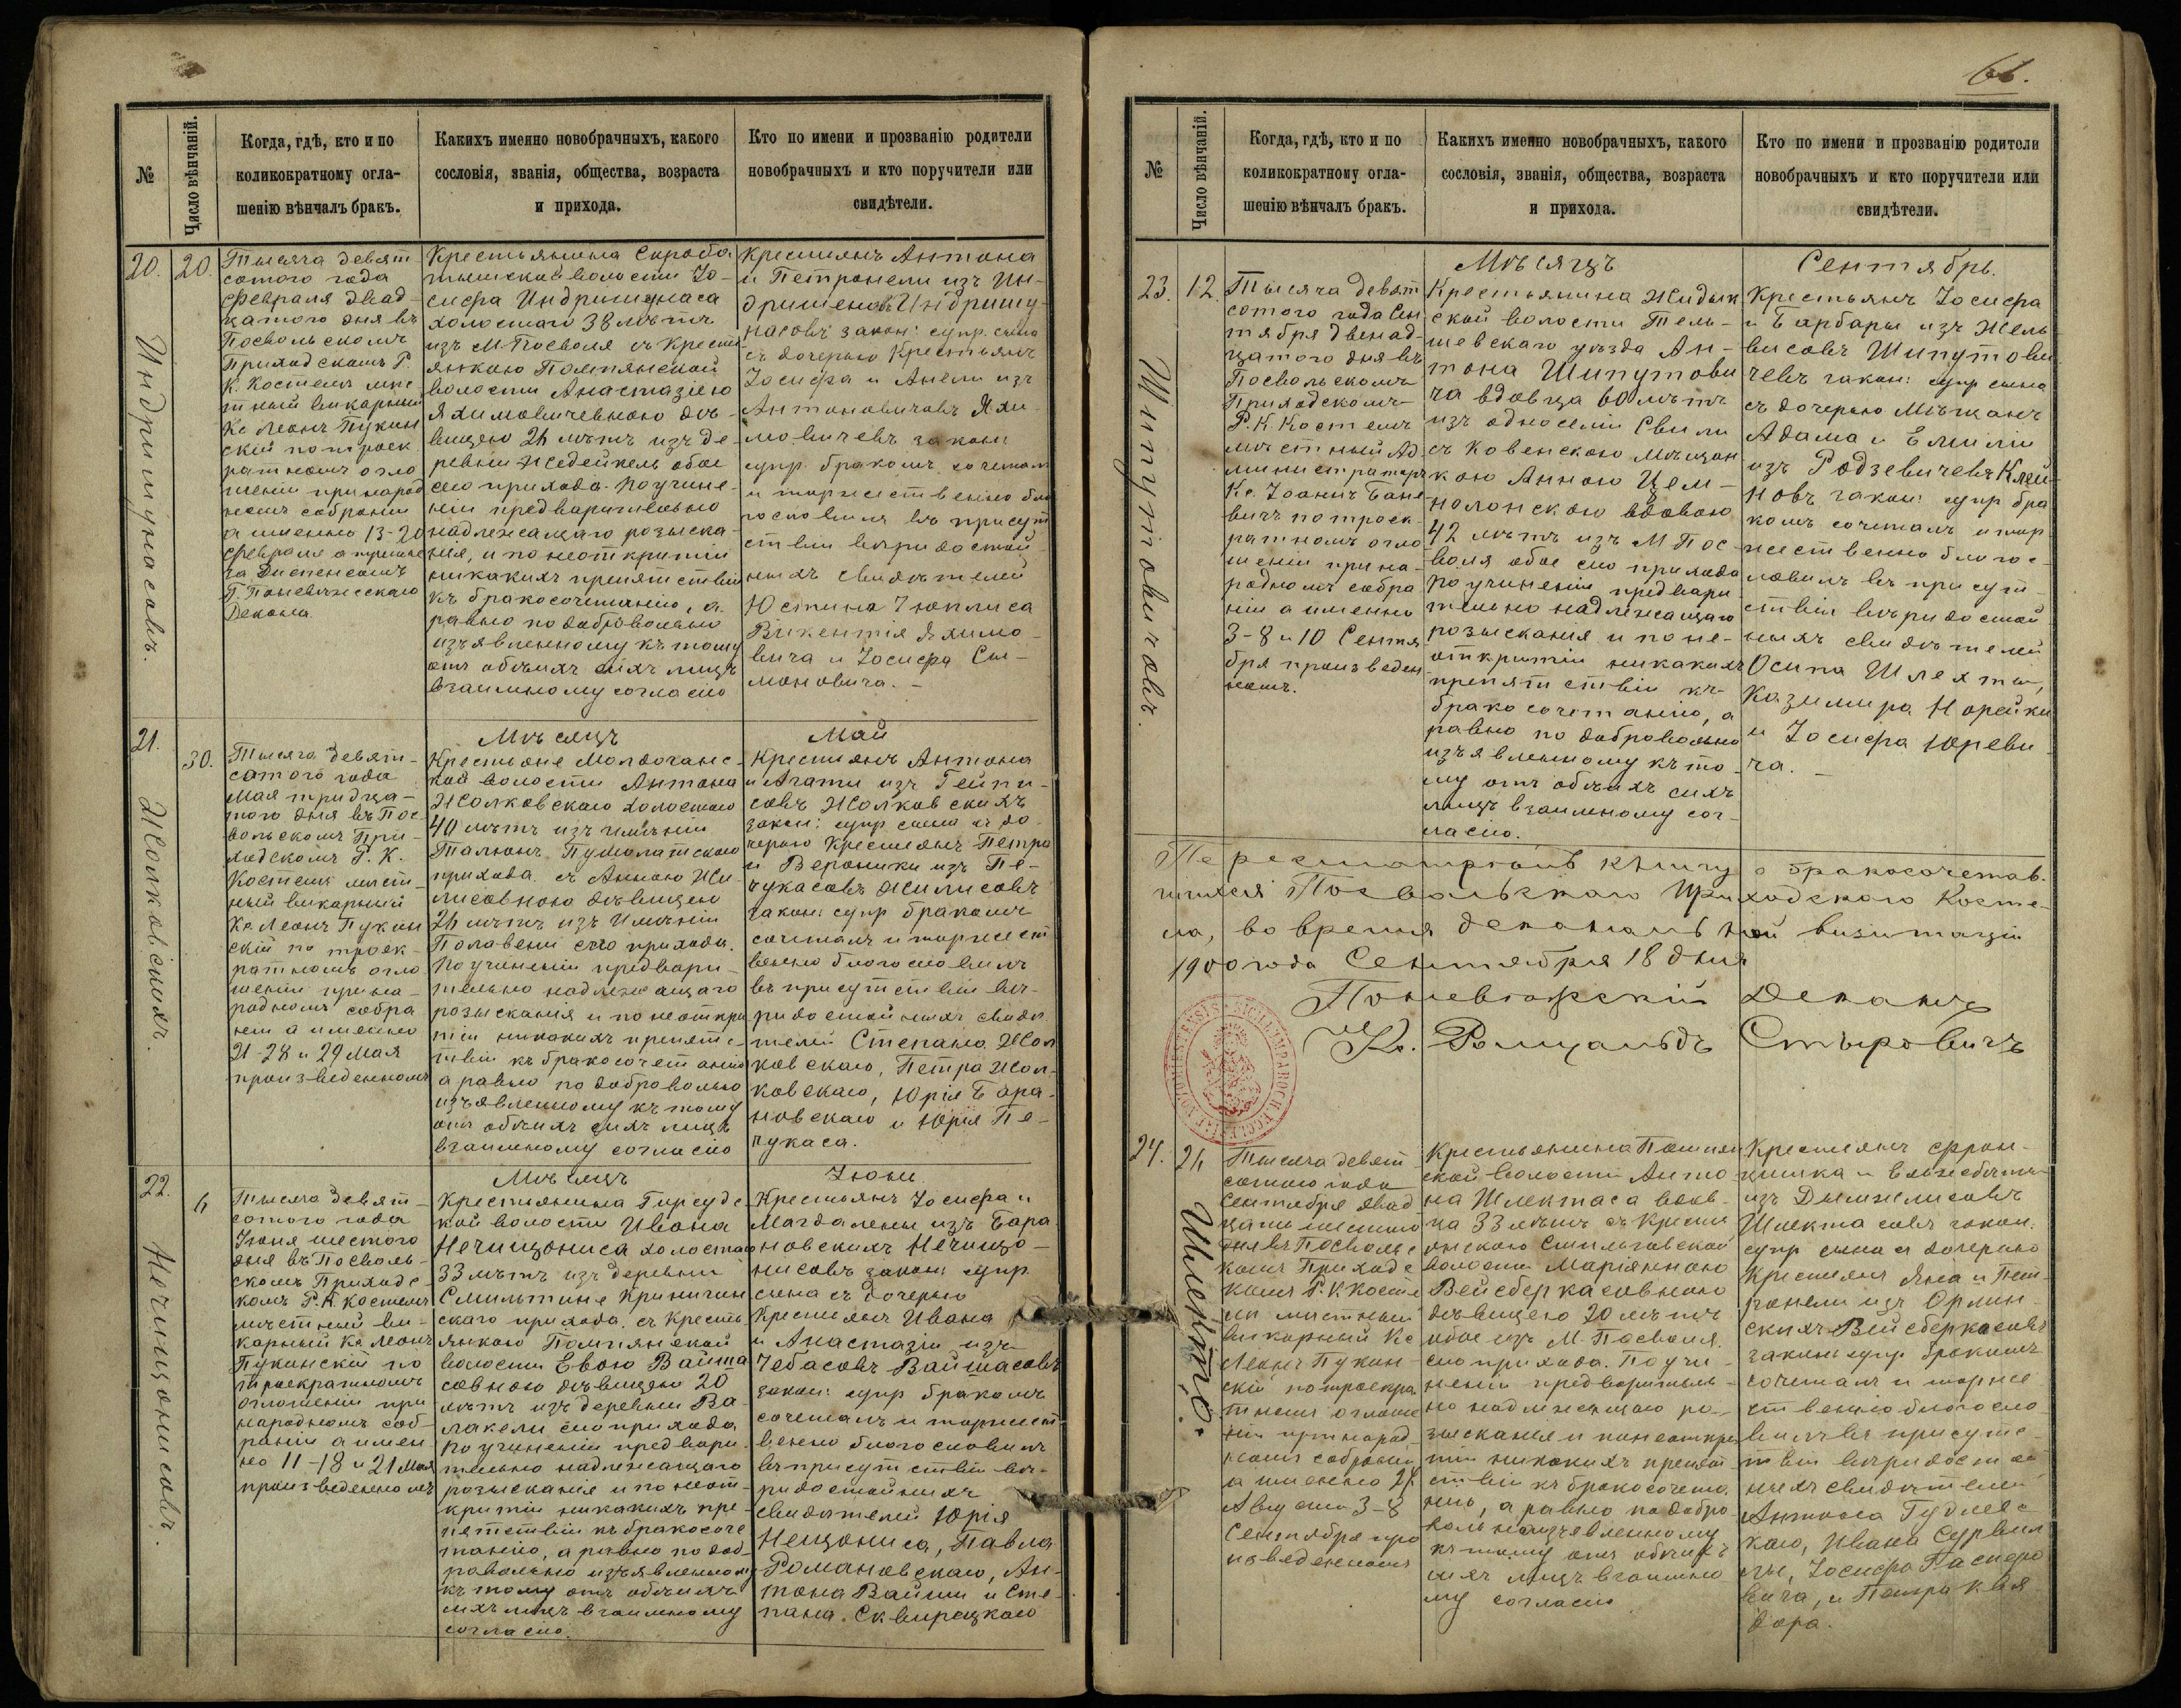 66.
№
Число вѣнчаній.
Когда, гдѣ, кто и по
коликократному огла-
шенію вѣнчалъ бракъ.
Какихъ именно новобрачныхъ, какого
сословія, званія, общества, возраста
и прихода.
Кто по имени и прозванію родители
новобрачныхъ и кто поручители или
свидѣтели.
20.
20.
Индришунасовъ.
Тысяча девят
сотого года
Февраля двад-
цатого дня въ
Посвольскомъ
Приходскомъ Р.
К. Костелѣ мѣс
тный викарный
Кс Леонъ Пукин
скій по троек
ратномъ огло
шеніи при народ
номъ собраніи
а именно 13-20
Февраля а третье
за Диспенсомъ
Г. Поневѣжскаго
Декана.
Крестьянина Скробо
тышской волости Іо-
сифа Индришунаса
холостаго 38 лѣтъ
изъ М Посволя съ Крест
янкою Помпянской
волости Анастазіею
Яхимовичевною дѣ-
вицею 26 лѣтъ изъ де-
ревни Жедейкель обое
сего прихода. По учине-
ніи предварительно
надлежащаго розыска-
нія, и по неоткрытіи
никакихъ препятствій
къ бракосочетанію, а
равно по добровольно
изъявленному къ тому
отъ обѣихъ сихъ лицъ
взаимному согласію
Крестьянъ Антона
и Петронели изъ Ин-
дришеновъ Индришу-
насовъ закон: супр. сына
съ дочерью Крестьянъ
Іосифа и Анели изъ
Антоновичовъ Яхи-
мовичевъ закон:
супр. бракомъ сочеталъ
и торжественно бла
гословилъ въ присут
ствіи вѣридостой-
ныхъ свидѣтелей
Юстина Тюплиса
Викентія Яхимо-
вича и Іосифа Сы-
моновича. –
21.
30.
Жолковскихъ.
Мѣсяцъ
Май
Тысяча девят-
сотого года
Мая тридца-
того дня въ Пос-
вольскомъ При-
ходскомъ Р. К.
Костелѣ мѣст-
ный викарный
Кс Леонъ Пукин
скій по троек-
ратномъ огло
шеніи при на-
родномъ собра
ніи а именно
21-28 и 29 Мая
произведенномъ
Антона
Жолковскаго холостаго
40 лѣтъ изъ имѣнія
прихода съ Анною Жи-
лисовною дѣвицею
26 лѣтъ изъ Имѣнія
Полавени сего прихода.
По учиненіи предвари-
тельно надлежащаго
розысканія и по неоткры
тіи никакихъ препятс-
твій къ бракосочетанію
а равно по добровольно
изъявленному къ тому
отъ обѣихъ сихъ лицъ
взаимному согласію
Крестьянъ Антона
и Агаты изъ Гейти-
совъ Жолковскихъ
закон: супр сына съ до-
черью Крестьянъ Петра
и Вероники изъ Пе-
чукасовъ Жилисовъ
закон: супр бракомъ
сочеталъ и торжест
венно благословилъ
въ присутствіи вѣ-
ридостойныхъ свидѣ
телей Степана Жол
ковскаго, Петра Жол-
ковскаго, Юрія Бара-
новскаго и Юрія Пе-
пукаса.
22.
6
Нечицонисовъ.
Мѣсяцъ
Іюнь
Тысяча девят-
сотого года
Іюня шестого
дня въ Посволь-
скомъ Приходс-
комъ Р. К. Костелѣ
мѣстный ви-
карный Кс Леонъ
Пукинскій по
троекратномъ
оглошеніи при
народномъ соб-
раніи а имен-
но 11-18 и 21 Мая
произведенномъ
Крестьянина Гирсудс
кой волости Ивана
Нечицониса холостаго
33 лѣтъ изъ деревни
Смильтине Криничин
скаго прихода съ Кресть
янкою Помпянской
волости Евою Вайта
совною дѣвицею 20
лѣтъ изъ деревни Ва-
лакели сего прихода
По учиненіи предвари-
тельно надлежащаго
розысканія и по неот-
крытіи никакихъ пре-
пятствій къ бракосоче
танію, а равно по доб-
ровольно изъявленному
къ тому отъ обѣихъ
сихъ лицъ взаимному
согласію.
Крестьянъ Іосифа и
Магдалены изъ Бара
новскихъ Нечицо-
нисовъ закон: супр
сына съ дочерью
Крестьянъ Ивана
и Анастазіи изъ
Чебасовъ Вайтасовъ
закон: супр бракомъ
сочеталъ и торжест
венно благословилъ
въ присутствіи вѣ-
ридостойныхъ
свидѣтелей Юрія
Нецониса, Павла
Романовскаго, Ан-
тона Вайты и Сте-
пана Сквирецкаго
№
Число вѣнчаній.
Когда, гдѣ, кто и по
коликократному огла-
шенію вѣнчалъ бракъ.
Какихъ именно новобрачныхъ, какого
сословія, званія, общества, возраста
и прихода.
Кто по имени и прозванію родители
новобрачныхъ и кто поручители или
свидѣтели.
23.
12.
Шипутовичовъ.
Мѣсяцъ
Сентябрь.
Тысяча девят
сотого года Сен
тября двенад-
цатого дня въ
Посвольскомъ
Приходскомъ
Р. К. Костелѣ
мѣстный Ад
министраторъ
Кс. Іоаннъ Бане
вичъ по троек-
ратномъ огло
шеніи при на-
родномъ собра
ніи а именно
3-8 и 10 Сентя
бря произведен
номъ.
Крестьянина Жидык
ской волости Тель-
шевскаго уѣзда Ан-
тона Шипутови
ча вдовца 60 лѣтъ
изъ односели Свили
съ Ковенскою мѣщан
кою Анною Цем-
нолонскою вдовою
42 лѣтъ изъ М Пос-
воля обое сего прихода
По учиненіи предвари
тельно надлежащаго
розысканія и по не-
открытіи никакихъ
препятствій къ
бракосочетанію, а
равно по добровольно
изъявленному къ то-
му отъ обѣихъ сихъ
лицъ взаимному сог-
ласію.
Крестьянъ Іосифа
и Барбары изъ Жель
висовъ Шипутови
чевъ закон: супр сына
съ дочерью Мѣщанъ
Адама и Емиліи
изъ Родзевичевъ Клей
новъ закон: супр бра
комъ сочеталъ и тор
жественно благос-
ловилъ въ присут-
ствіи вѣридостой
ныхъ свидѣтелей
Осипа Шляхты,
Казимира Норейки
и Іосифа Юреви-
ча. –
Пересматривалъ книгу о бракосочетав-
шихся Посвольскаго Приходскаго Косте-
ла, во время деканальной визитаціи
1900 года Сентября 18 дня
Поневѣжскій Деканъ
Кс. Ромуальдъ Стыровичъ
24.
26
Шлектъ.
Тысяча девят-
сотого года
Сентября двад
цать шестого
дня въ Посвольс
комъ Приходс
комъ Р. К. Косте
лѣ мѣстный
викарный Кс
Леонъ Пукин-
скій по троекра
тномъ оглоше
ніи при народ-
номъ собраніи
а именно
Августа 3-8
Сентября про
изведенномъ
Крестьянина Помпян
ской волости Анто-
на Шлектаса вдов-
ца 33 лѣтъ съ Кресть
янскою Смильговской
волости Маріянною
Вейсберкасовною
дѣвицею 20 лѣтъ
обое изъ М. Посволя
сего прихода. По учи-
неніи предваритель-
но надлежащаго ро-
зысканія и по неоткры
тіи никакихъ препят-
ствій къ бракосочета
нію, а равно по добро-
вольно изъявленному
къ тому отъ обѣихъ
сихъ лицъ взаимно
му согласію
Крестьянъ Фран-
цишка и Ельжбеты
изъ Дымжелисовъ
Шлектасовъ закон:
супр сына съ дочерью
Крестьянъ Яна и Пет-
ронели изъ Орлин-
скихъ Вейсберкасовъ
закон: супр бракомъ
сочеталъ и торже
ственно благосло
вилъ въ присутс-
твіи вѣридостой
ныхъ свидѣтелей
Антона Гудлевс
каго, Ивана Сурвил
лы, Іосифа Паспиро
вича, и Петра Кая
дора.